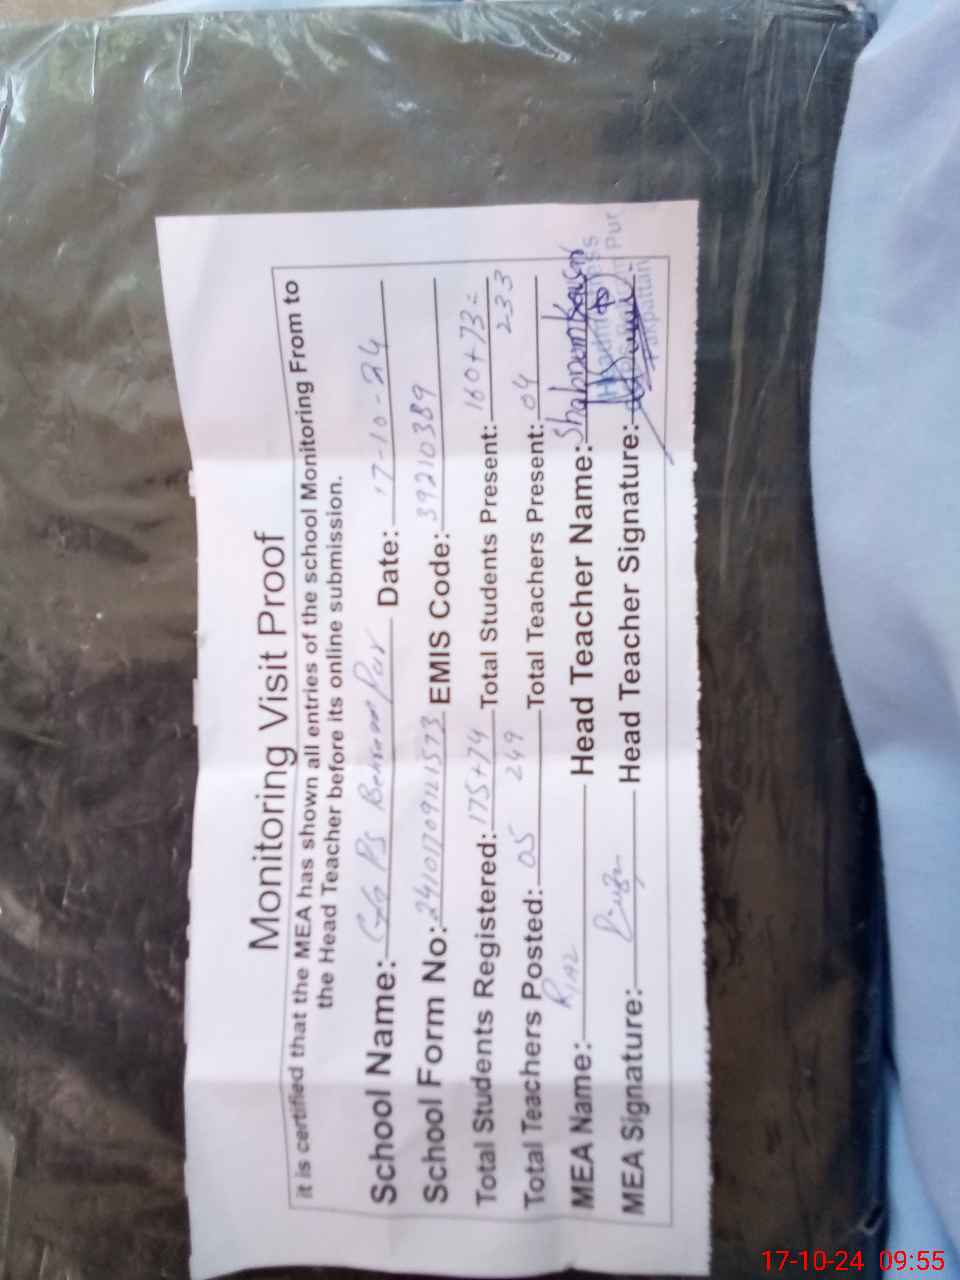 Monitoring Visit Proof
it is certified that the MEA has shown all entries of the school Monitoring From to
the Head Teacher before its online submission.
School Name: PS Date: 17-10-24
School Form No: EMIS Code: 39210389
Total Students Registered: 175+74 Total Students Present: 160+73=
249 233
Total Teachers Posted: 05 Total Teachers Present: 04
MEA Name: RIAZ Head Teacher Name: Shabnam Kousar
MEA Signature: Head Teacher Signature:
Pakpattan
17-10-24 09:55